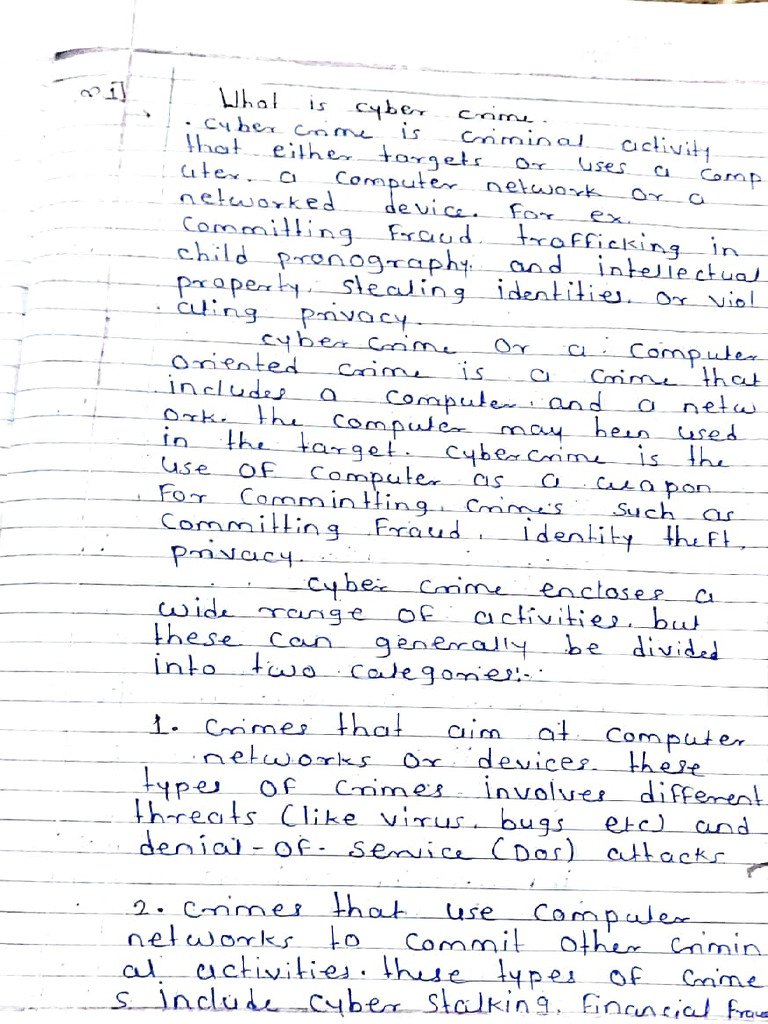 Q 1]
What is cyber crime.
. cyber crime is criminal activity
that either targets or uses a comp
uter. a computer network or a
networked device. For ex.
Committing Fraud. trafficking in
child pronography. and intellectual
property, stealing identities. or viol
ating privacy.
cyber crime or a computer
oriented crime is a crime that
includes a computer and a netw
ork. the computer may been used
in the target. cybercrime is the
use of computer as a weapon
For Commintting. crimes such as
Committing Fraud, identity theft,
privacy.
cyber crime encloses a
wide range of activities. but
these can generally be divided
into two categories:-
1. crimes that aim at computer
networks or devices. these
types of crimes involves different
threats (like virus. bugs etc) and
denial-of-service (Dos) attacks
2. crimes that use computer
networks to commit other crimin
al activities. these types of crime
s include cyber stalking, financial frau